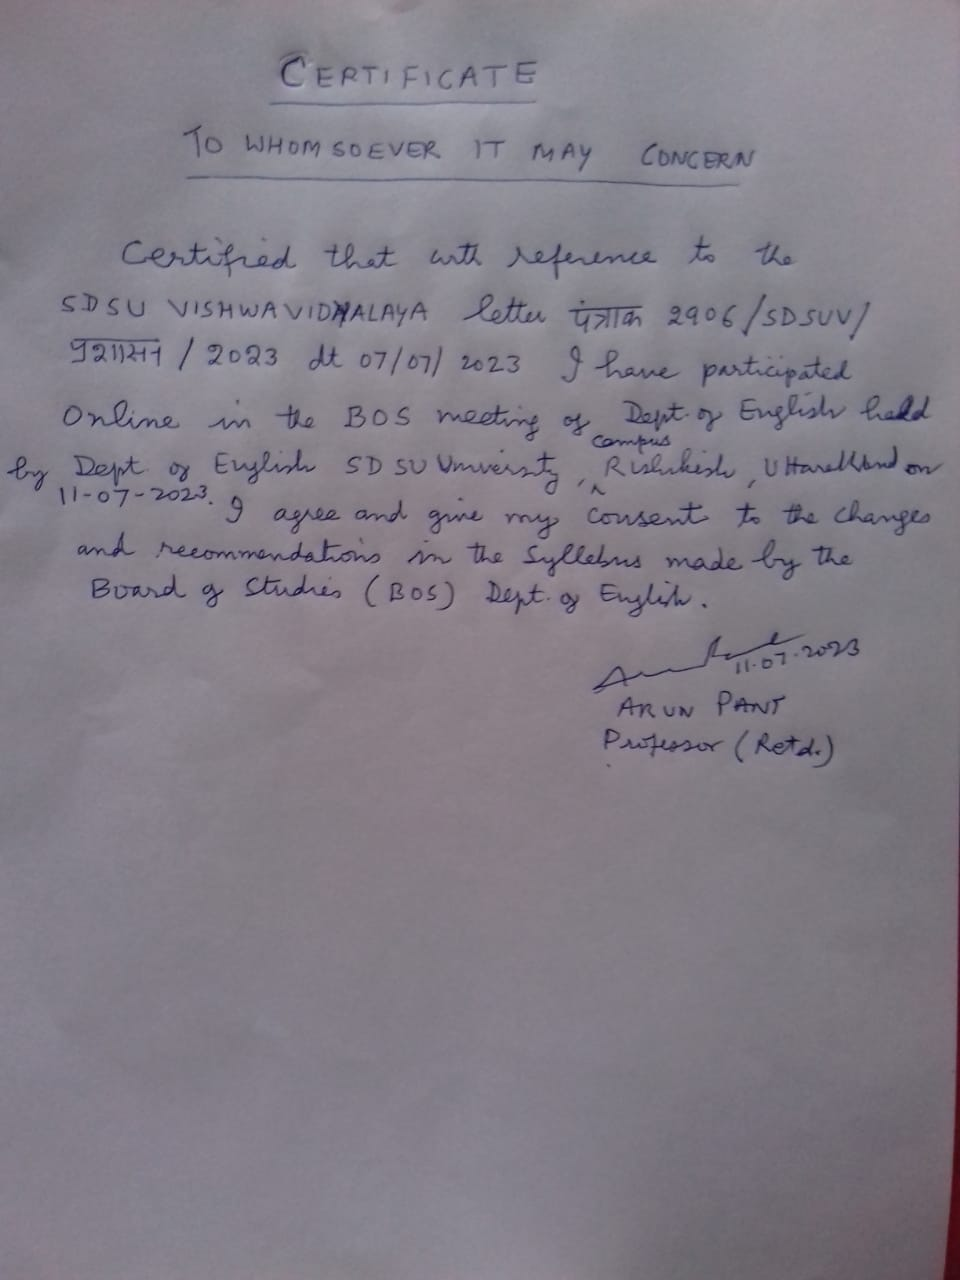 CERTIFICATE
TO WHOMSOEVER IT MAY CONCERN
Certified that with reference to the
SDSU VISHWAVIDYALAYA letter पत्रांक 2906/SDSUV/
प्रशासन / 2023 dt 07/07/2023 I have participated
Online in the BOS meeting of Dept. of English held
campus
by Dept. of English SDSU University, Rishikesh, Uttarakhand on
11-07-2023. I agree and give my consent to the changes
and recommendations in the Syllebus made by the
Board of Studies (BOS) Dept. of English.
11.07.2023
ARUN PANT
Professor (Retd.)